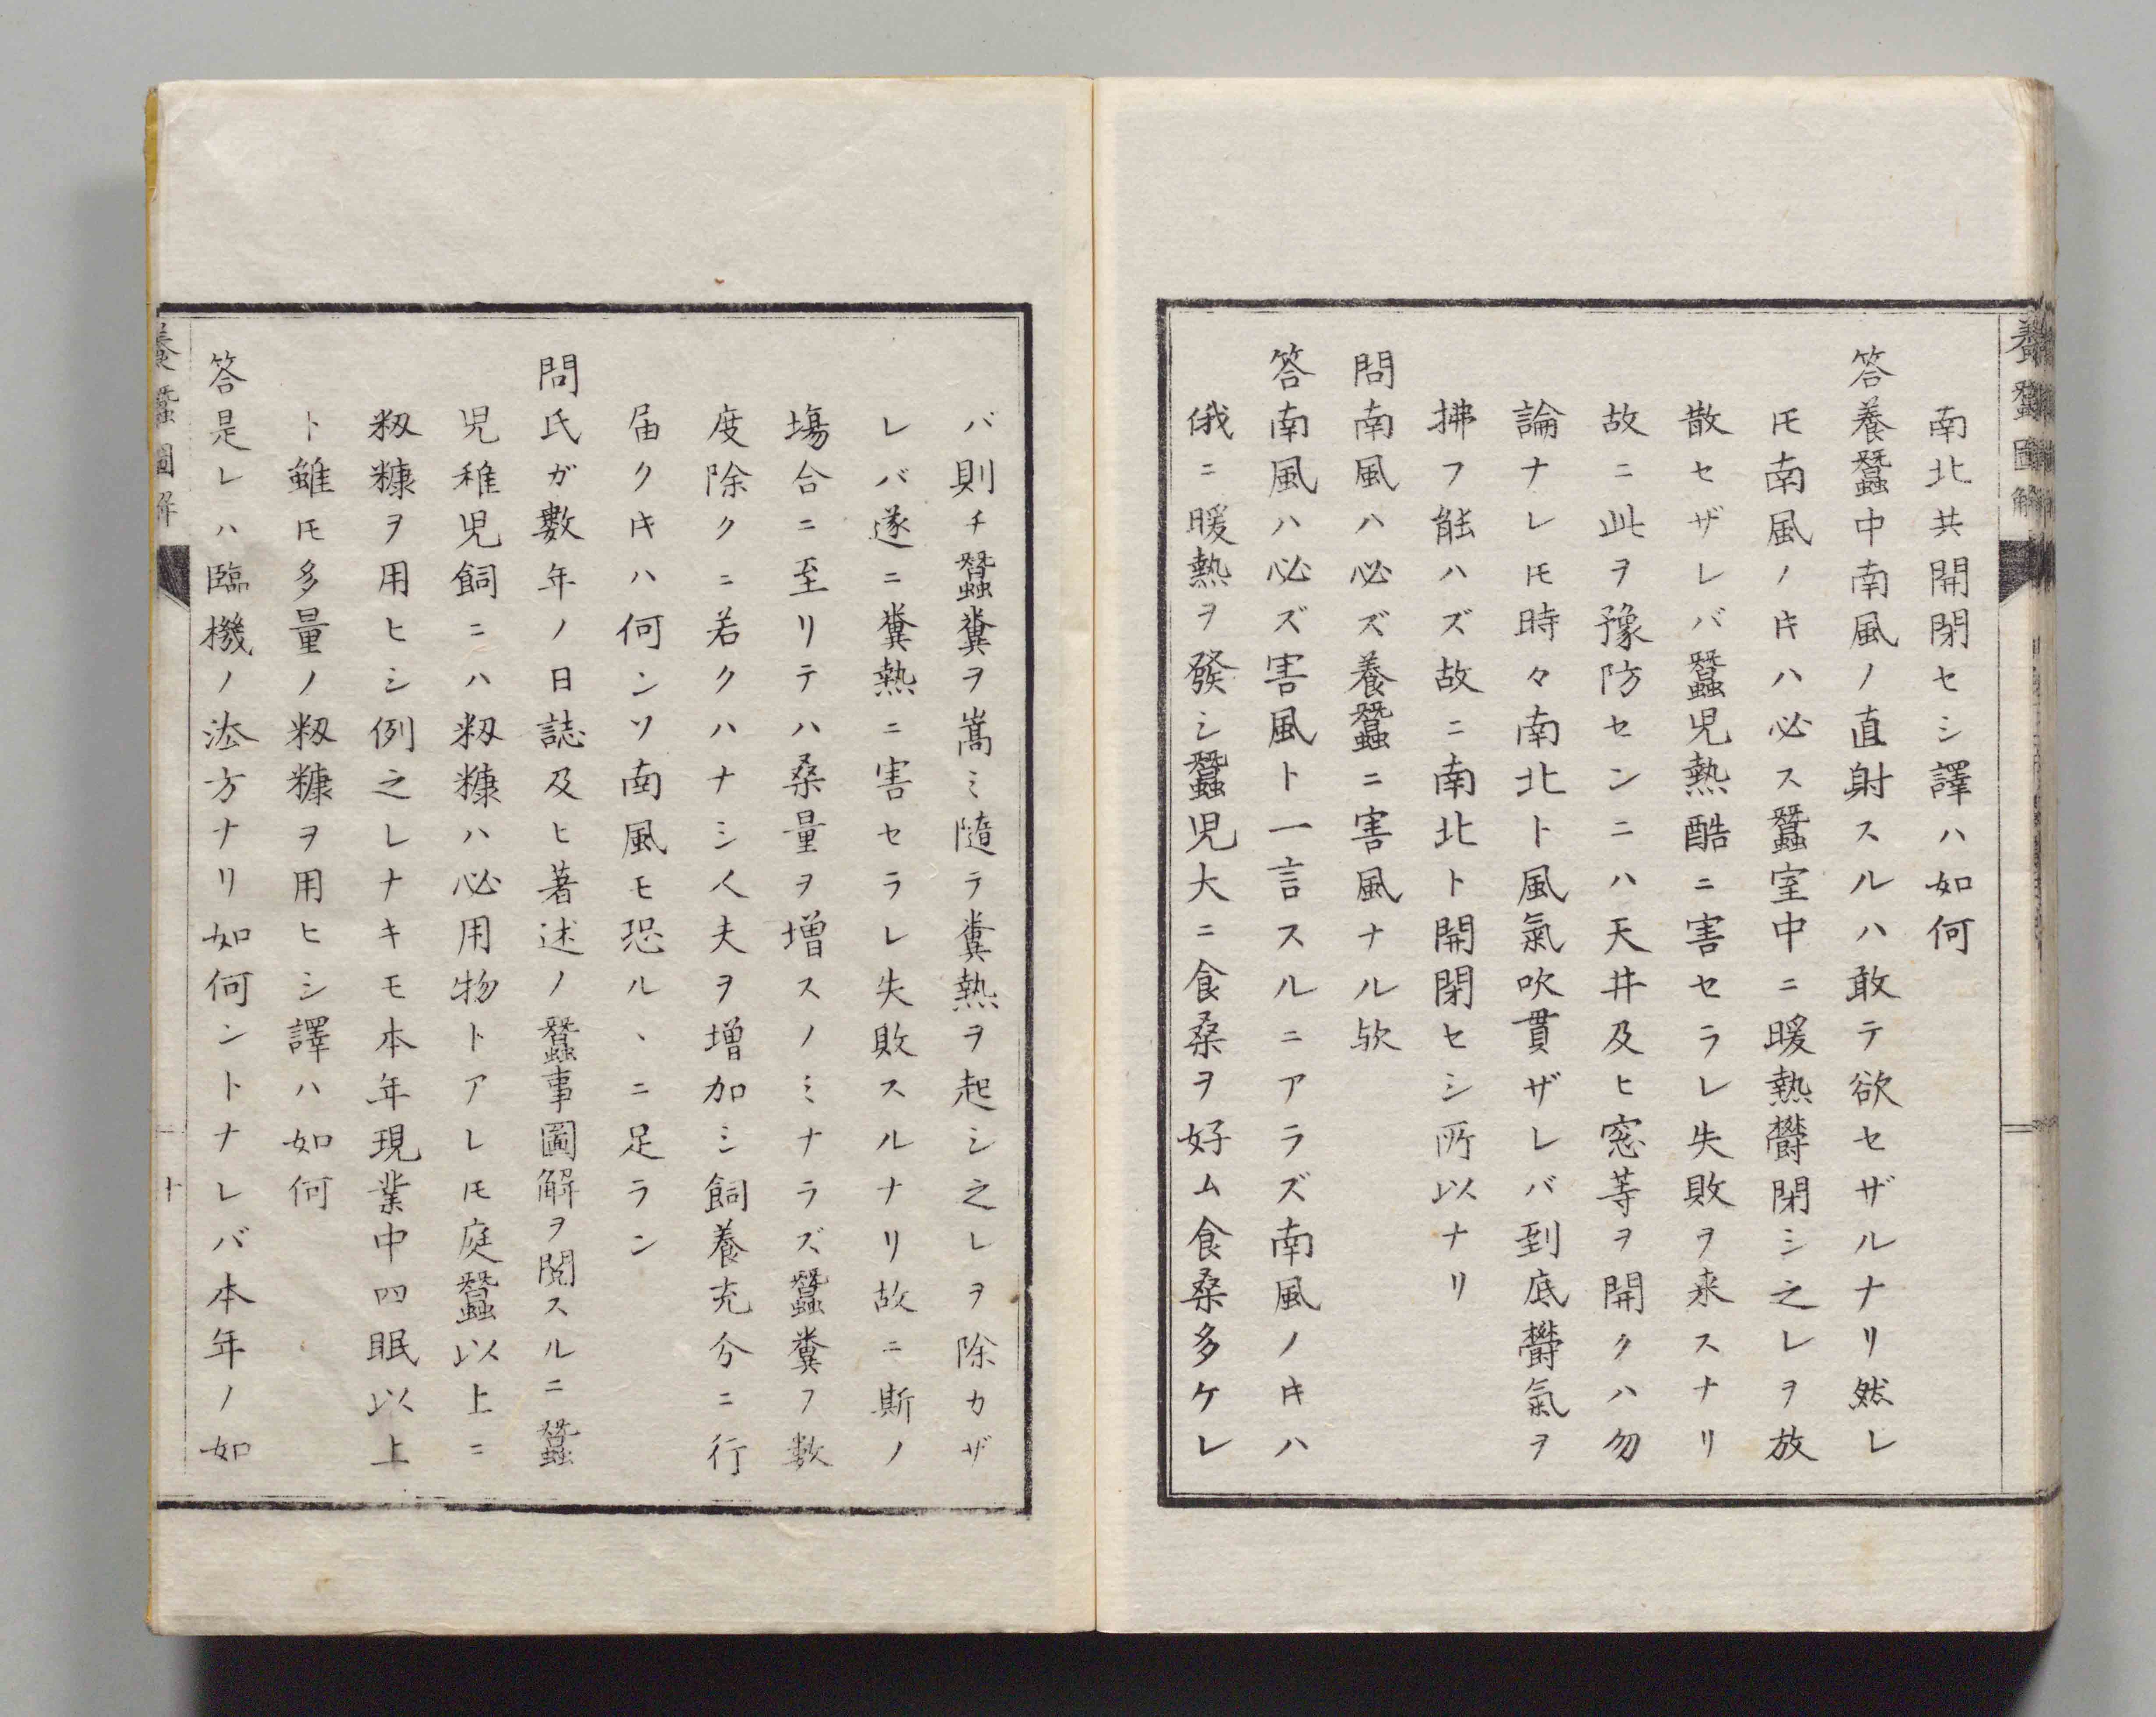 養蠶圖解
南北共開閉セシ譯ハ如何
答養蠶中南風ノ直射スルハ敢テ欲セザルナリ然レ
𪜈南風ノ𪜀ハ必ス蠶室中ニ暖熱欝閉シ之レヲ放
散セザレバ蠶児熱酷ニ害セラレ失敗ヲ来スナリ
故ニ此ヲ豫防センニハ天井及ヒ窓等ヲ開クハ勿
論ナレ𪜈時々南北ト風氣吹貫ザレバ到底欝氣ヲ
拂フ能ハズ故ニ南北ト開閉セシ所以ナリ
問南風ハ必ズ養蠶ニ害風ナル欤
答南風ハ必ズ害風ト一言スルニアラズ南風ノ𪜀ハ
俄ニ暖熱ヲ發シ蠶児大ニ食桑ヲ好ム食桑多ケレ
バ則チ蠶糞ヲ嵩ミ随テ糞熱ヲ起シ之レヲ除カザ
レバ遂ニ糞熱ニ害セラレ失敗スルナリ故ニ斯ノ
塲合ニ至リテハ桑量ヲ増スノミナラズ蠶糞フ数
度除クニ若クハナシ人夫ヲ増加シ飼養充分ニ行
届ク𪜀ハ何ンソ南風モ恐ルヽニ足ラン
問氏ガ數年ノ日誌及ヒ著述ノ蠶事圖解ヲ閲スルニ蠶
児稚児飼ニハ籾糠ハ必用物トアレ𪜈庭蠶以上ニ
籾糠ヲ用ヒシ例之レナキモ本年現業中四眠以上
ト雖𪜈多量ノ籾糠ヲ用ヒシ譯ハ如何
答是レハ臨機ノ法方ナリ如何ントナレバ本年ノ如
養蠶圖解
十